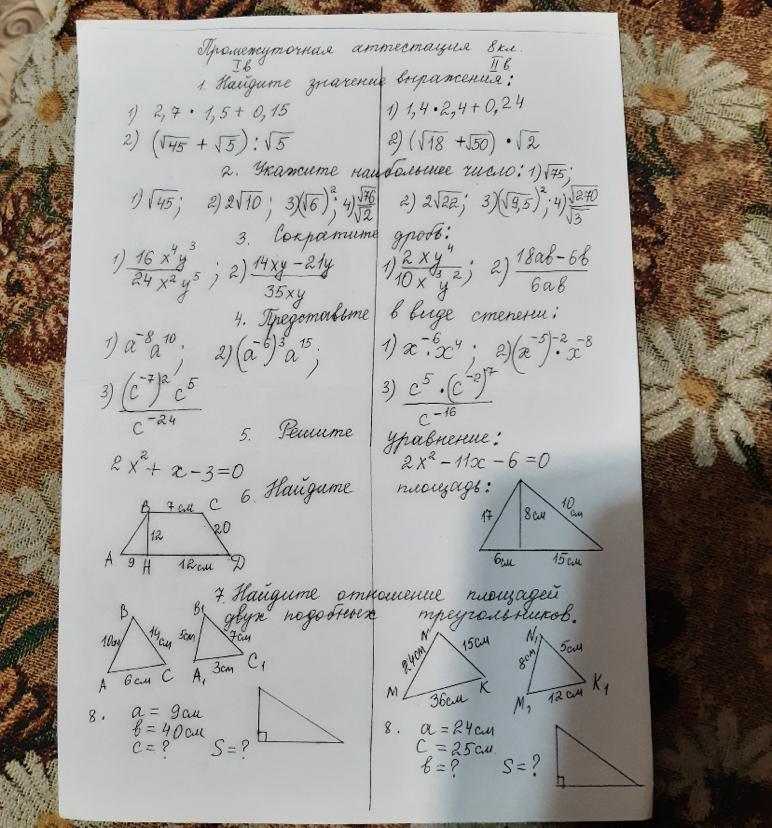 Промежуточная аттестация 8кл.
Iв IIв
1. Найдите значение выражения:
1) 2,7 · 1,5 + 0,15
2) (√45 + √5) : √5
1) 1,4 · 2,4 + 0,24
2) (√18 + √50) · √2
2. Укажите наибольшее число:
1) √45; 2) 2√10; 3) (√6)²; 4) √76/√2
1) √75;
2) 2√22; 3) (√9,5)²; 4) √270/√3
3. Сократите дробь:
1) 16x⁴y³/24x²y⁵; 2) 14xy − 21y/35xy
1) 2xy⁴/10x³y²; 2) 18ab − 6b/6ab
4. Представьте в виде степени:
1) a⁻⁸a¹⁰; 2) (a⁻⁶)³a¹⁵;
3) (c⁻⁷)²c⁵/c⁻²⁴
1) x⁻⁶·x⁴; 2) (x⁻⁵)⁻²·x⁻⁸
3) c⁵·(c⁻²)⁷/c⁻¹⁶
5. Решите уравнение:
2x² + x − 3 = 0
2x² − 11x − 6 = 0
6. Найдите площадь:
B 7см C
12 20
A 9 H 12см D
17 8см 10см
6см 15см
7. Найдите отношение площадей
двух подобных треугольников.
B
10см 14см
A 6см C
B₁
5см 7см
A₁ 3см C₁
N
24см 15см
M 36см K
N₁
8см 5см
M₁ 12см K₁
8. a = 9см
b = 40см
c = ? S = ?
8. a = 24см
c = 25см
b = ? S = ?